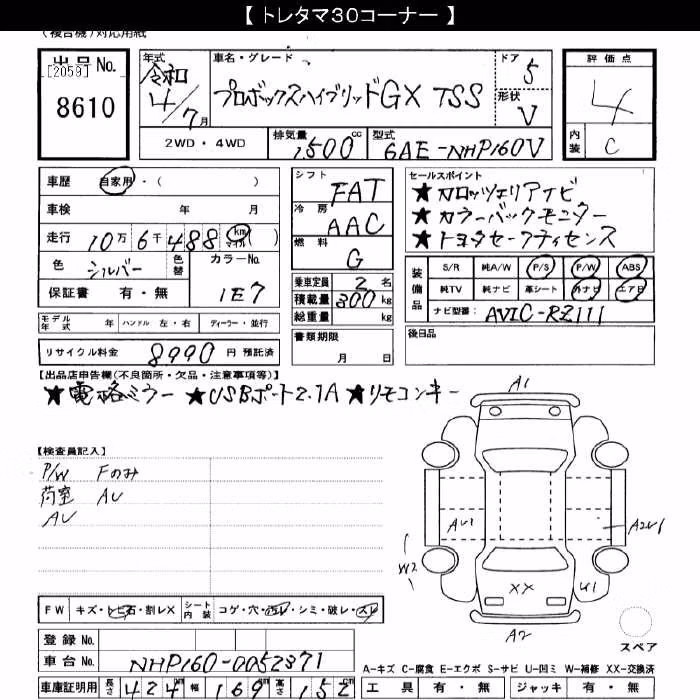 【 トレタマ30コーナー 】
(複合機)対応用紙
出品No.
[2059]
8610
年式
令和
4/7月
車名・グレード
プロボックスハイブリッドGX TSS
ドア
5
形状
V
評価点
4
内装
C
2WD・4WD
排気量
1,500cc
型式
6AE-NHP160V
車歴 自家用・( )
車検 年 月
走行 10万6千488 km マイル ( )
色 シルバー 色替
カラーNo.
1E7
保証書 有・無
モデル年式 年 ハンドル 左・右 ディーラー・並行
リサイクル料金 8990 円 預託済
シフト
FAT
冷房
AAC
燃料
G
乗車定員 2名
積載量 300kg
総重量 kg
書類期限
月 日
セールスポイント
★カロッツェリアナビ
★カラーバックモニター
★トヨタセーフティセンス
装備品
S/R 純A/W P/S P/W ABS
純TV 純ナビ 革シート 外ナビ エアB
ナビ型番: AVIC-RZ111
後日品
【出品店申告欄(不良箇所・欠品・注意事項等)】
★電格ミラー ★USBポート2.1A ★リモコンキー
【検査員記入】
P/W Fのみ
荷室 AU
AU
A1
AU1
A2U1
W2
XX
U1
A2
スペア
FW キズ・トビ石・割レX
シート内装 コゲ・穴・ヨゴレ・シミ・破レ・スレ
登録No.
車台No. NHP160-0052371
車庫証明用 長さ 424cm 幅 169cm 高さ 152cm
A-キズ C-腐食 E-エクボ S-サビ U-凹ミ W-補修 XX-交換済
工具 有・無 ジャッキ 有・無